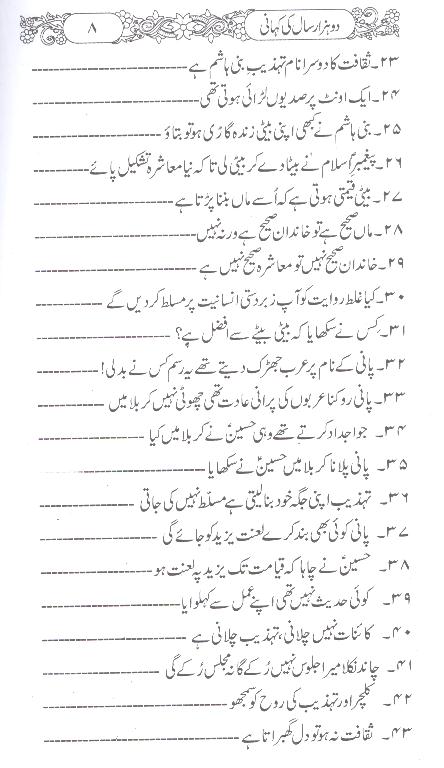 دو ہزار سال کی کہانی ۸
۲۳۔ ثقافت کا دوسرا نام تہذیبِ بنی ہاشم ہے
۲۴۔ ایک اونٹ پر صدیوں لڑائی ہوتی تھی
۲۵۔ بنی ہاشم نے کبھی اپنی بیٹی زندہ گاڑی ہو تو بتاؤ
۲۶۔ پیغمبرِ اسلام نے بیٹا دے کر بیٹی لی تا کہ نیا معاشرہ تشکیل پائے
۲۷۔ بیٹی قیمتی ہوتی ہے کہ اُسے ماں بننا پڑتا ہے
۲۸۔ ماں صحیح ہے تو خاندان صحیح ہے ورنہ نہیں
۲۹۔ خاندان صحیح نہیں تو معاشرہ صحیح نہیں ہے
۳۰۔ کیا غلط روایت کو آپ زبردستی انسانیت پر مسلط کر دیں گے
۳۱۔ کس نے سکھایا کہ بیٹی بیٹے سے افضل ہے؟
۳۲۔ پانی کے نام پر عرب جھڑک دیتے تھے یہ رسم کس نے بدلی!
۳۳۔ پانی روکنا عربوں کی پرانی عادت تھی چھوٹی نہیں کربلا میں
۳۴۔ جو اجداد کرتے تھے وہی حسینؑ نے کربلا میں کیا
۳۵۔ پانی پلانا کربلا میں حسینؑ نے سکھایا
۳۶۔ تہذیب اپنی جگہ خود بنا لیتی ہے مسلّط نہیں کی جاتی
۳۷۔ پانی کوئی بھی بند کرے لعنت یزید کو جائے گی
۳۸۔ حسینؑ نے چاہا کہ قیامت تک یزید پہ لعنت ہو
۳۹۔ کوئی حدیث نہیں تھی اپنے عمل سے کہلوایا
۴۰۔ کائنات نہیں چلانی، تہذیب چلانی ہے
۴۱۔ چاند نکلا میرا جلوس نہیں رُکے گا نہ مجلس رُکے گی
۴۲۔ کلچر اور تہذیب کی روح کو سمجھو
۴۳۔ ثقافت نہ ہو تو دل گھبراتا ہے